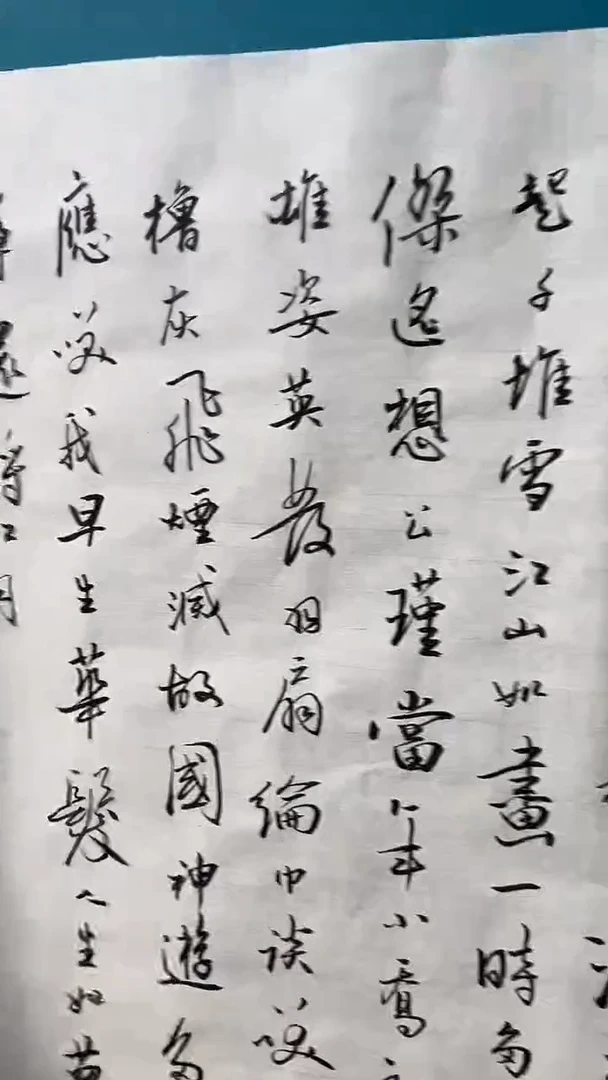 起千堆雪江山如畫一時多
傑遙想公瑾當年小喬
雄姿英發羽扇綸巾談咲
櫓灰飛煙滅故國神遊多
應咲我早生華髮人生如
還酹江月